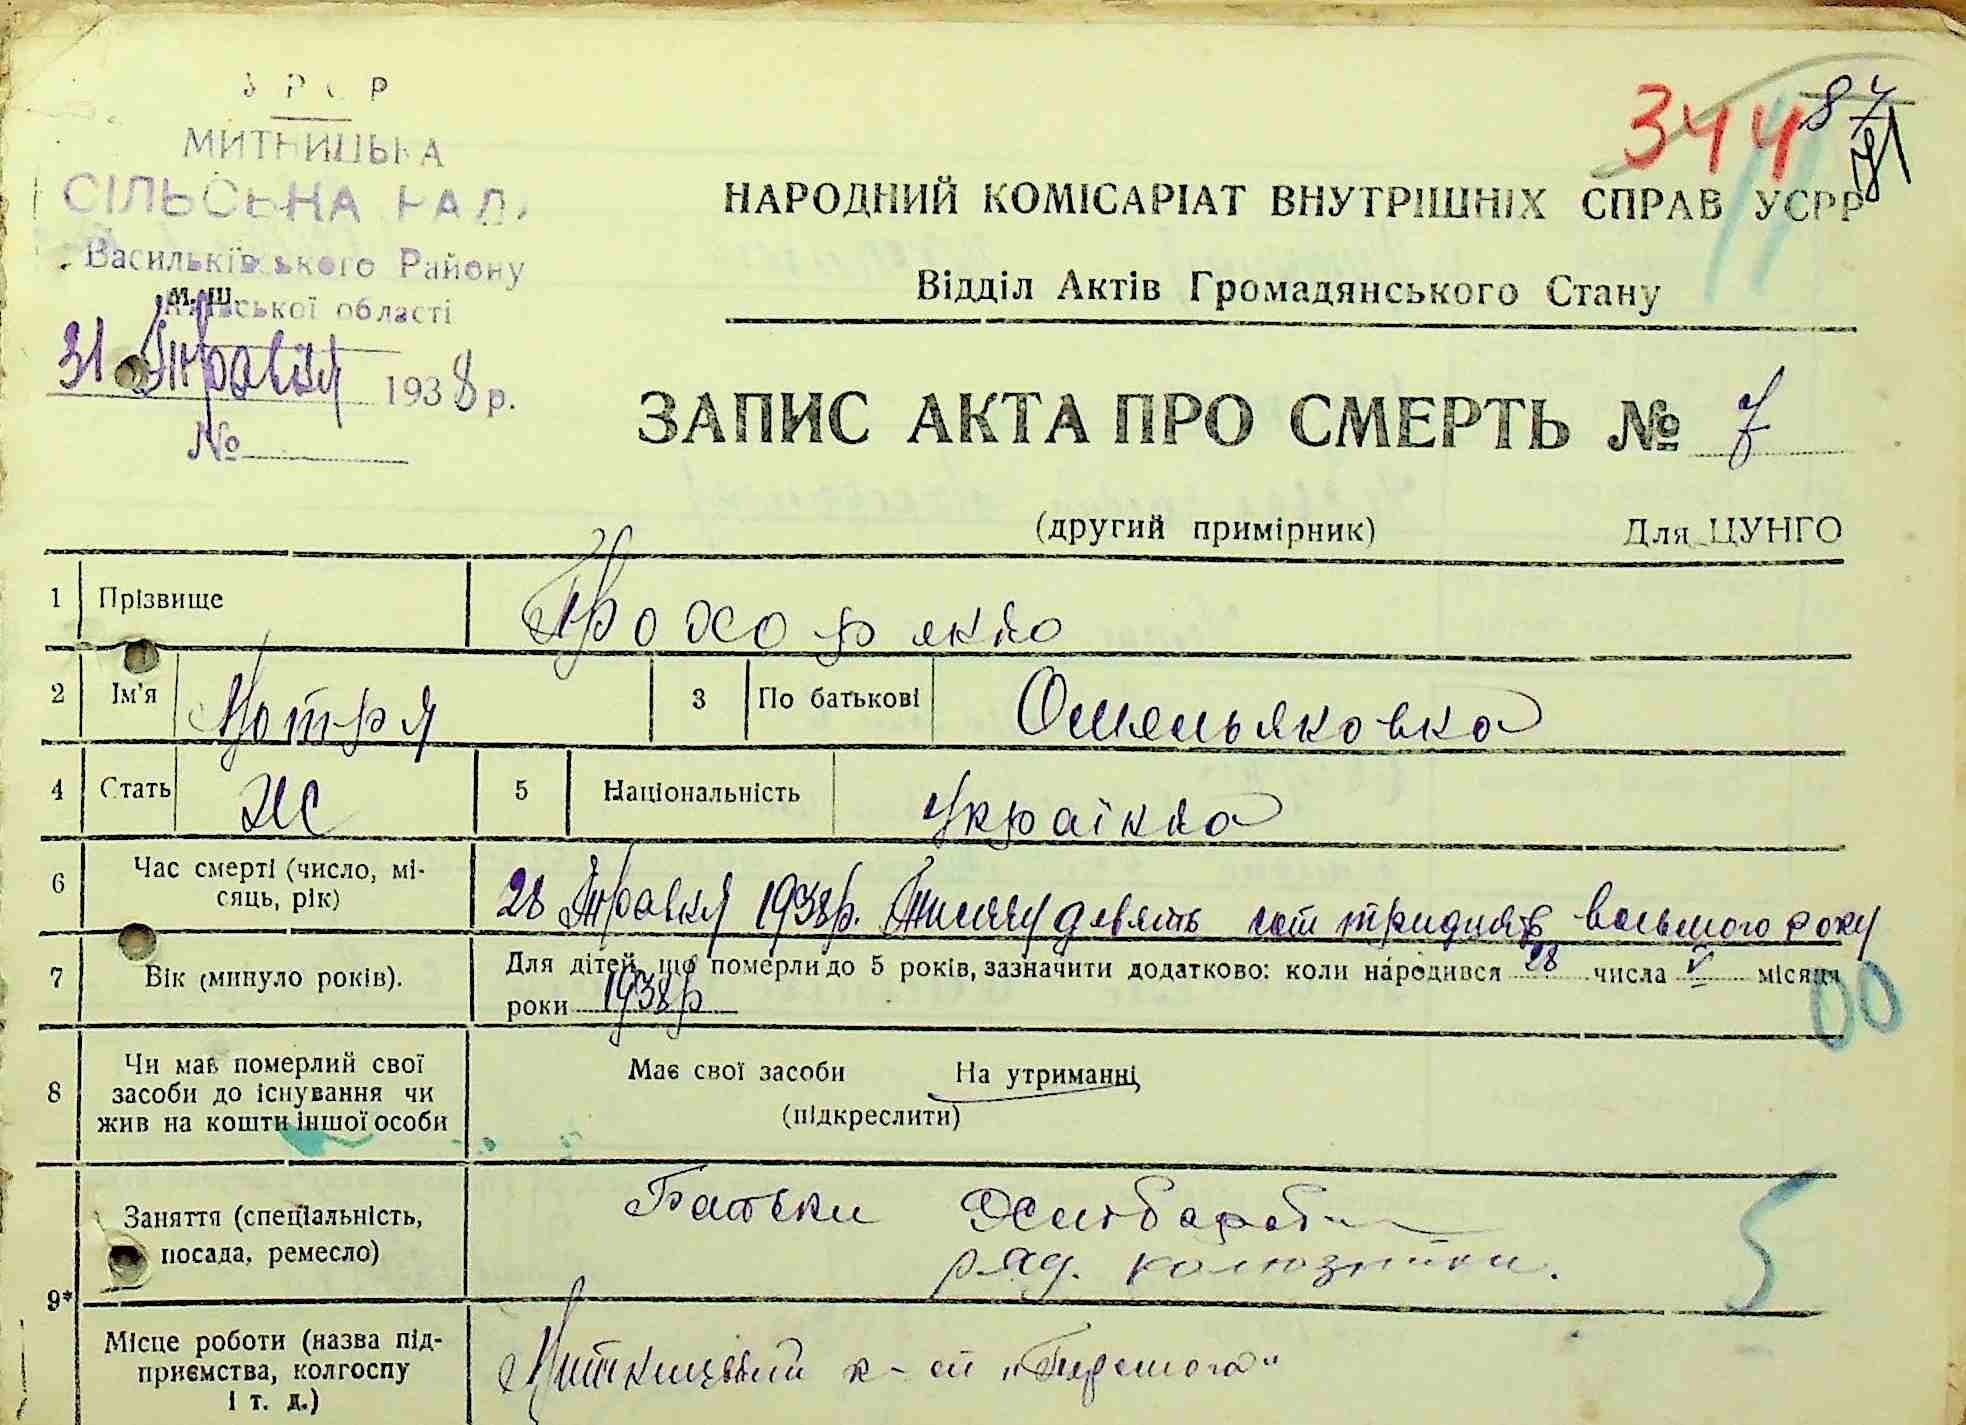 УРСР
МИТНИЦЬКА
СІЛЬСЬКА РАДА
Васильківського Району
м. Ш.
Київської області
31 Травня 1938 р.
№
344
87
НАРОДНИЙ КОМІСАРІАТ ВНУТРІШНІХ СПРАВ УСРР
Відділ Актів Громадянського Стану
ЗАПИС АКТА ПРО СМЕРТЬ № 7
(другий примірник) Для ЦУНГО
1 Прізвище Прохоренко
2 Ім'я Мотря 3 По батькові Омельяновна
4 Стать Ж 5 Національність українка
6 Час смерті (число, мі-
сяць, рік) 28 Травня 1938 р. Тисячу девять сот тридцять восьмого року
7 Вік (минуло років). Для дітей, що померли до 5 років, зазначити додатково: коли народився 28 числа V місяця
роки 1938 р 00
8 Чи має померлий свої
засоби до існування чи
жив на кошти іншої особи
Має свої засоби На утриманні
(підкреслити)
9* Заняття (спеціальність,
посада, ремесло)
Батьки Хлібороби
ряд. колгозники. 5
Місце роботи (назва під-
приємства, колгоспу
і т. д.)
Митницький к-сп „Перемога“